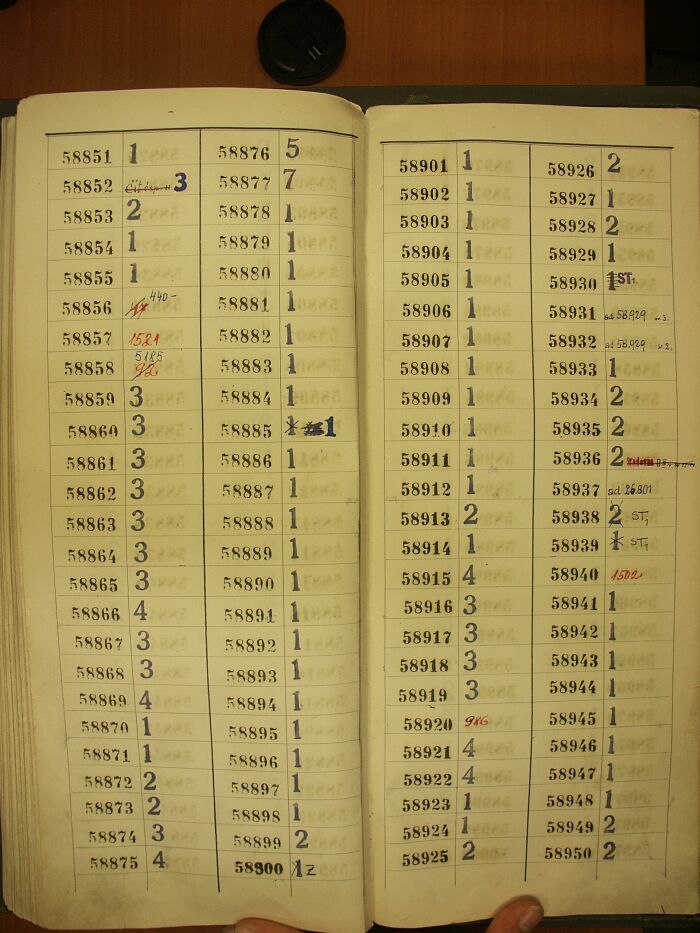 58851 1
58852 3
58853 2
58854 1
58855 1
58856 440-
58857 1521
58858 5185 92
58859 3
58860 3
58861 3
58862 3
58863 3
58864 3
58865 3
58866 4
58867 3
58868 3
58869 4
58870 1
58871 1
58872 2
58873 2
58874 3
58875 4
58876 5
58877 7
58878 1
58879 1
58880 1
58881 1
58882 1
58883 1
58884 1
58885 1 1
58886 1
58887 1
58888 1
58889 1
58890 1
58891 1
58892 1
58893 1
58894 1
58895 1
58896 1
58897 1
58898 1
58899 2
58900 1 Z
58901 1
58902 1
58903 1
58904 1
58905 1
58906 1
58907 1
58908 1
58909 1
58910 1
58911 1
58912 1
58913 2
58914 1
58915 4
58916 3
58917 3
58918 3
58919 3
58920 986
58921 4
58922 4
58923 1
58924 1
58925 2
58926 2
58927 1
58928 2
58929 1
58930 1 ST1
58931 ad 58.929
58932 ad 58.929
58933 1
58934 2
58935 2
58936 2
58937 ad 26.801
58938 2 ST1
58939 1 ST1
58940 1502
58941 1
58942 1
58943 1
58944 1
58945 1
58946 1
58947 1
58948 1
58949 2
58950 2